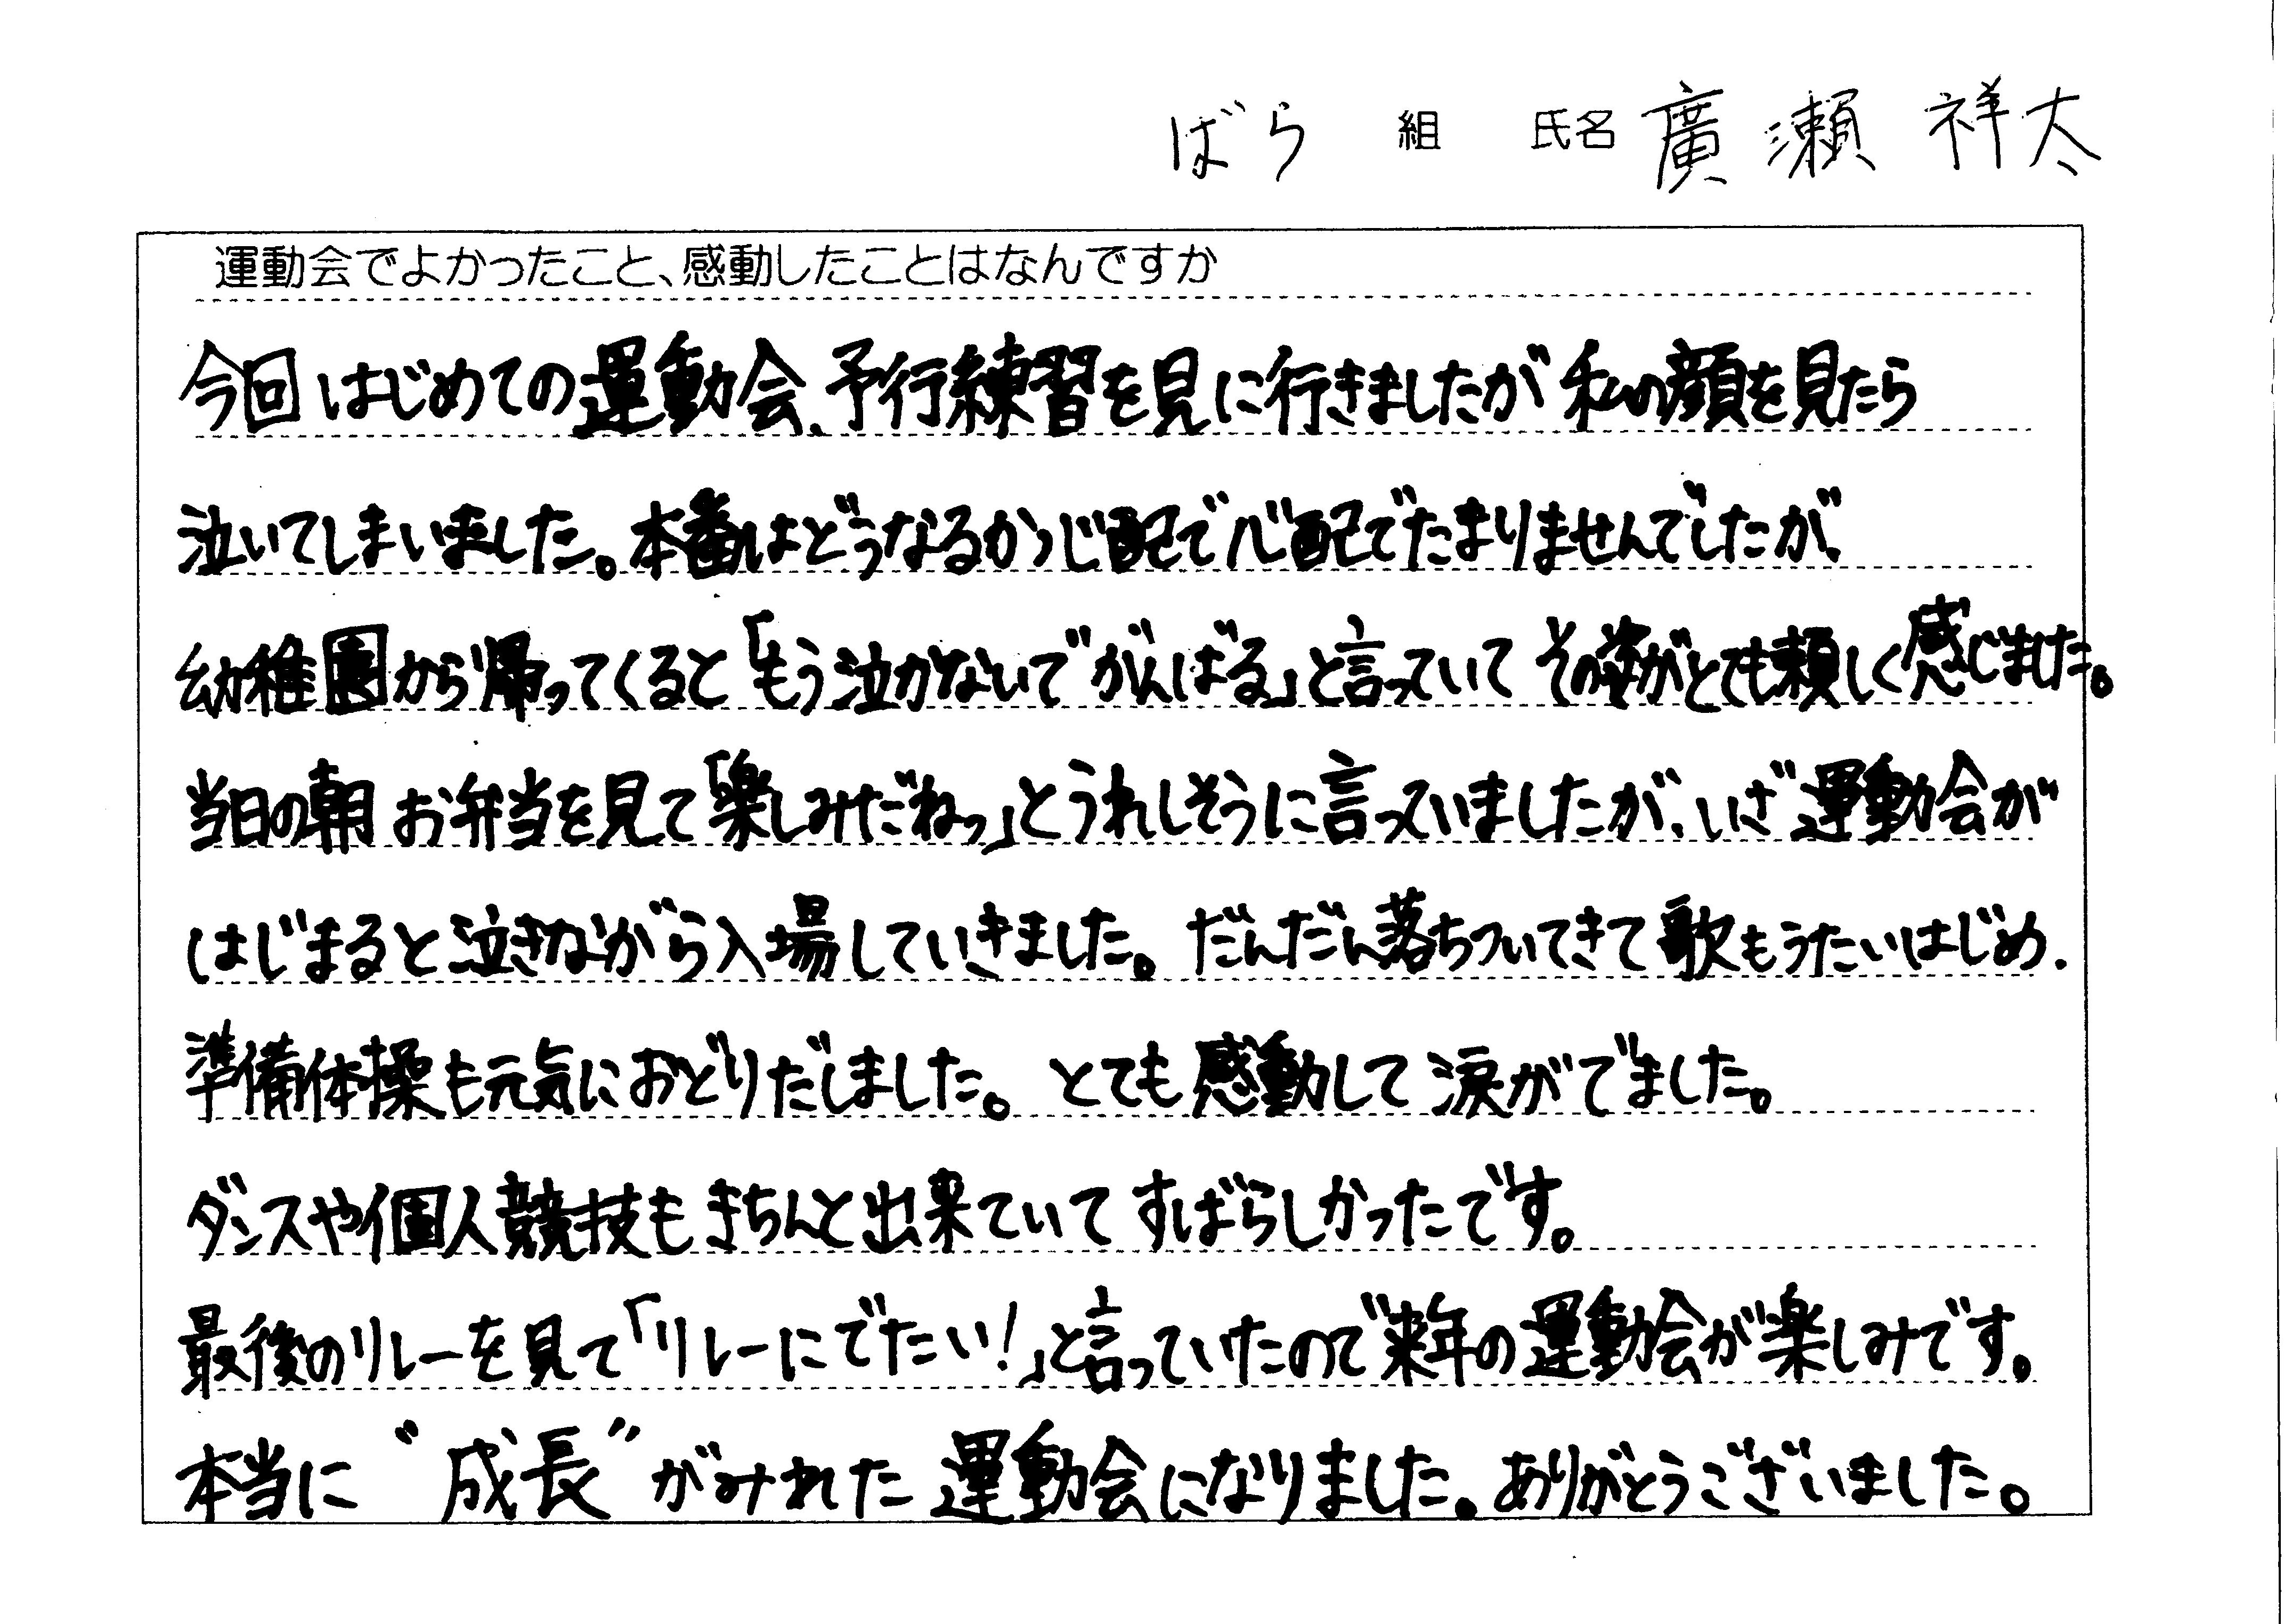 ばら 組 氏名 廣瀬 祥太
運動会でよかったこと、感動したことはなんですか
今回はじめての運動会、予行練習を見に行きましたが私の顔を見たら
泣いてしまいました。本番はどうなるか心配で心配でたまりませんでしたが、
幼稚園から帰ってくると「もう泣かないでがんばる」と言っていて その姿がとても頼しく感じました。
当日の朝 お弁当を見て「楽しみだねっ」とうれしそうに言っていましたが、いざ運動会が
はじまると泣きながら入場していきました。だんだん落ちついてきて歌もうたいはじめ、
準備体操も元気におどりだしました。とても感動して涙がでました。
ダンスや個人競技もきちんと出来ていてすばらしかったです。
最後のリレーを見て「リレーにでたい!」と言っていたので来年の運動会が楽しみです。
本当に “成長” がみれた運動会になりました。ありがとうございました。